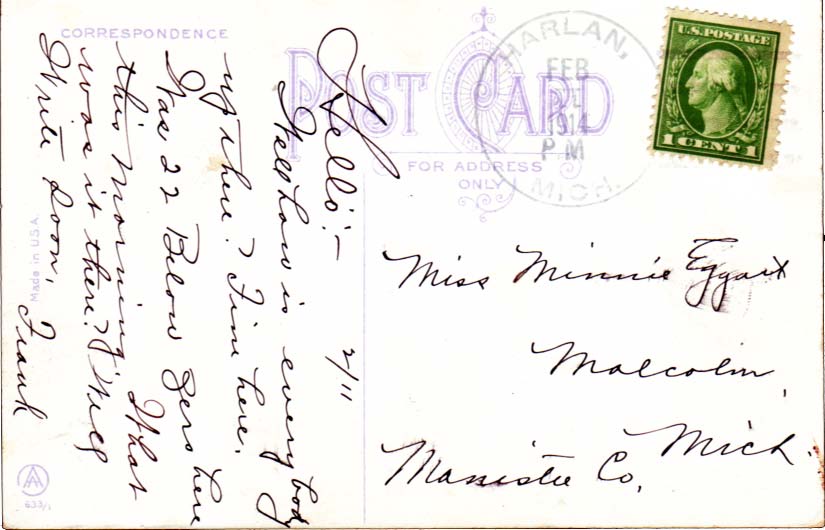 CORRESPONDENCE
POST CARD
FOR ADDRESS
ONLY
HARLAN,
FEB
1914
P M
MICH.
U.S. POSTAGE
1 CENT 1
Hello:-
2/11
Well how is every body
up there? Fine here.
Was 22 Below Zero here
this morning. What
was it there? Well
Write Soon, Frank
Made in U.S.A.
633/1
Miss Minnie
Malcolm,
Mich.
Manistee Co,